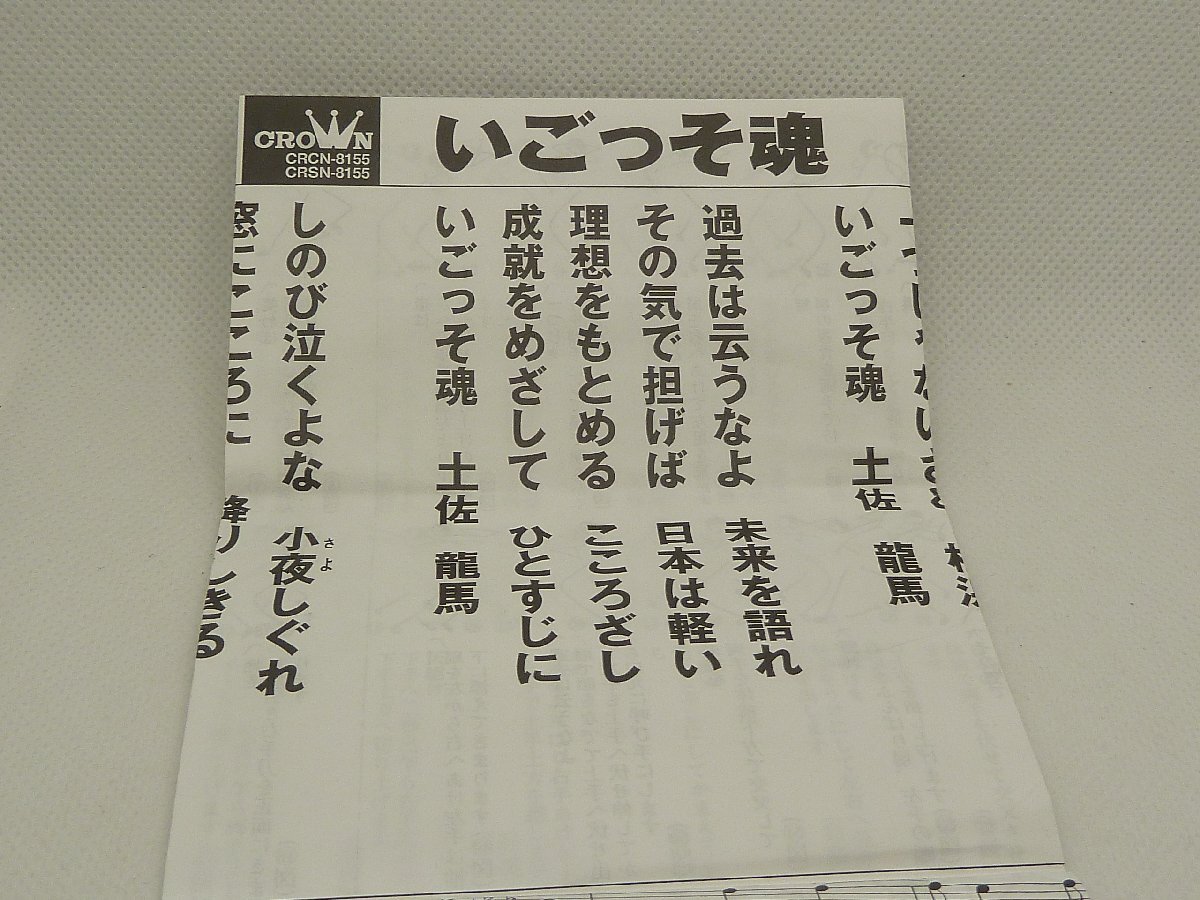 CROWN
CRCN-8155
CRSN-8155
いごっそ魂
いごっそ魂 土佐 龍馬
過去は云うなよ 未来を語れ
その気で担げば 日本は軽い
理想をもとめる こころざし
成就をめざして ひとすじに
いごっそ魂 土佐 龍馬
しのび泣くよな 小夜しぐれ
さよ
窓にこころに 降りしきる